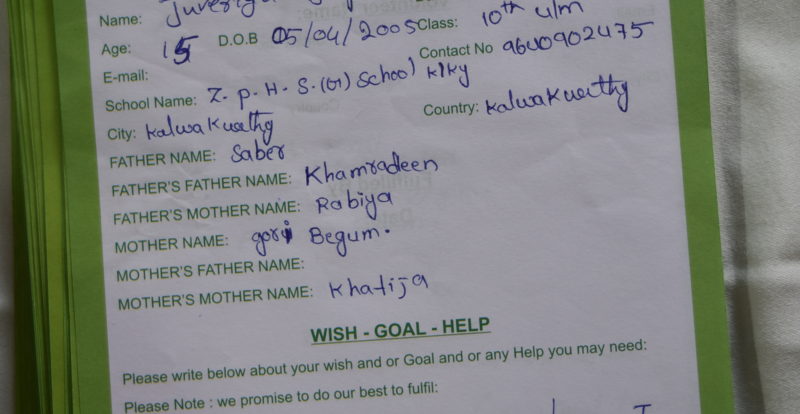 Name:
Age: 15 D.O.B 05/04/2005 Class: 10th u/m
E-mail: Contact No 9640902475
School Name: Z. P. H. S. (G) School klky
City: Kalwakurthy Country: Kalwakurthy
FATHER NAME: Saber
FATHER'S FATHER NAME: Khamradeen
FATHER'S MOTHER NAME: Rabiya
MOTHER NAME: gori Begum.
MOTHER'S FATHER NAME:
MOTHER'S MOTHER NAME: Khatija
WISH - GOAL - HELP
Please write below about your wish and or Goal and or any Help you may need:
Please Note : we promise to do our best to fulfil: